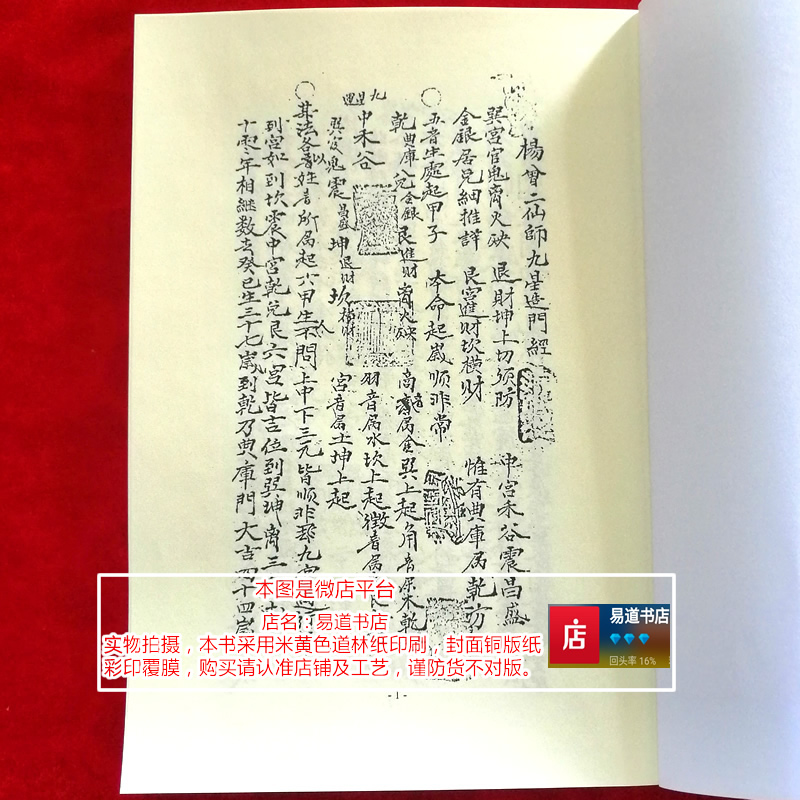 楊曾二仙師九星造門經
巽宮官鬼離火殃 退財坤上切須防 中宮禾谷震昌盛
金銀居兌細推詳 艮宮進財坎橫財 惟有典庫屬乾方
五音生處起甲子 本命起歲順非常
乾典庫 兌金銀 艮進財 離火殃 商音屬金巽上起角音屬木乾
九星
中禾谷
巽官鬼 震昌盛 坤退財 坎橫財
羽音屬水坎上起徵音屬
宮音屬土坤上起
其法各以音姓音所屬起六甲生不問上中下三元皆順非耶九宮
到宮如到坎震中宮乾兌艮六宮皆吉位到巽坤離三
十零年相繼數去癸巳生三十七歲到乾乃典庫門大吉四十四歲
本图是微店平台
店名：易道书店
实物拍摄，本书采用米黄色道林纸印刷，封面铜版纸
彩印覆膜，购买请认准店铺及工艺，谨防货不对版。
店
易道书店
回头率 16%
- 1 -